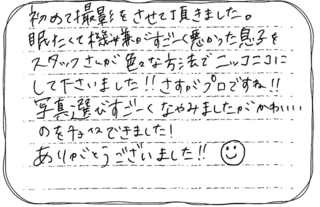 初めて撮影をさせて頂きました。
眠たくて機嫌がすごーく悪かった息子を
スタッフさんが色々な方法でニッコニコに
して下さいました!!さすがプロですね!!
写真選びすごーくなやみましたがかわいい
のをチョイスできました!
ありがとうございました!!